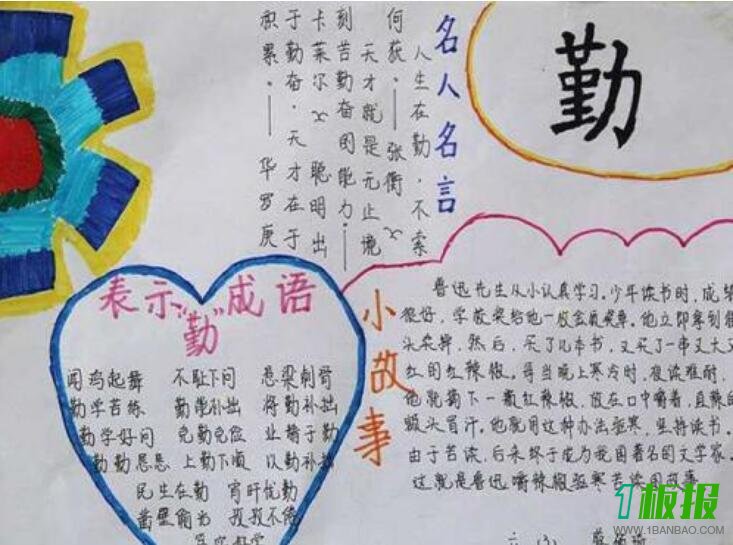 勤
名人名言
人生在勤，不索
何获。——张衡
天才就是无止境
刻苦勤奋的能力。——
卡莱尔 聪明出
于勤奋，天才在于
积累。——华罗庚
表示“勤”成语
闻鸡起舞 不耻下问 悬梁刺骨
勤学苦练 勤能补拙 将勤补拙
勤学好问 克勤克俭 业精于勤
勤勤恳恳 上勤下顺 以勤补拙
民生在勤 宵旰忧勤
凿壁偷光 孜孜不倦
小故事
鲁迅先生从小认真学习。少年读书时，成
很好，学校奖给他一枚金质奖章。他立即拿到
头卖掉，然后，买了几本书，又买了一串又大又
红的红辣椒。每当晚上寒冷时，夜读难耐，
他就摘下一颗红辣椒，放在口中嚼着，直辣的
额头冒汗。他就用这种办法驱寒，坚持读书。
由于苦读，后来终于成为我国著名的文学家。
这就是鲁迅嚼辣椒驱寒苦读的故事
六（3）
1板报
WWW.1BANBAO.COM